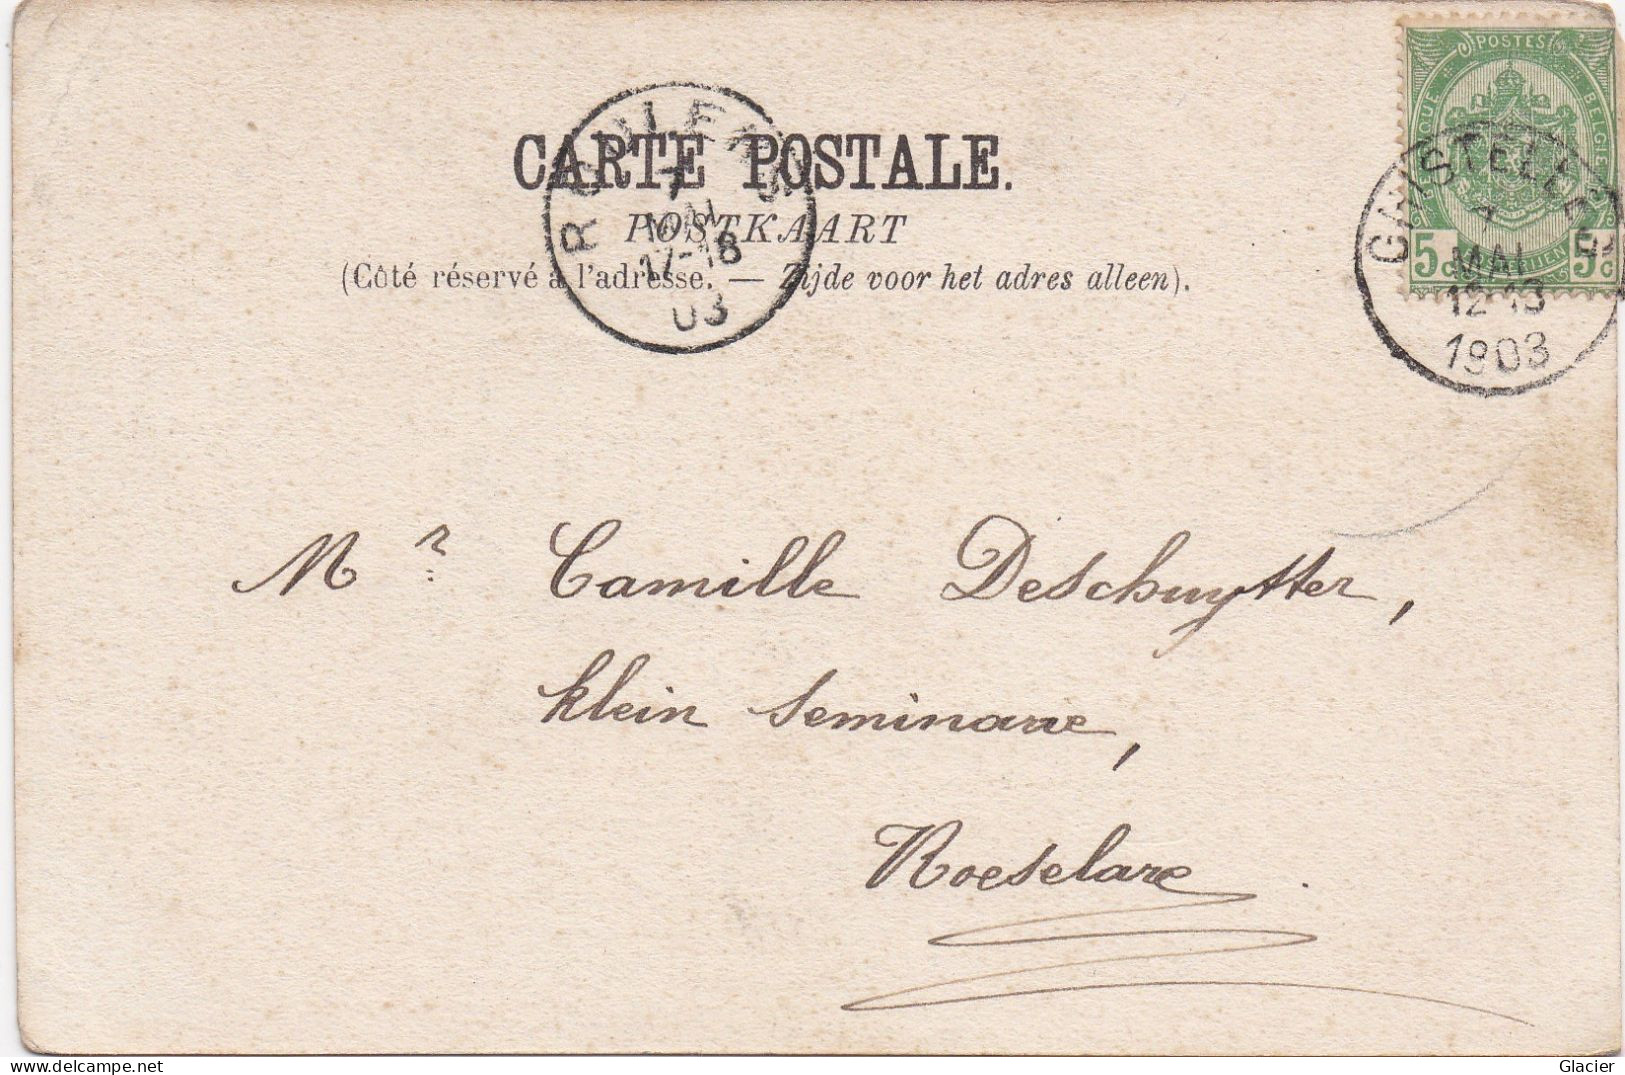 POSTES
BELGIQUE BELGIE
5c 5c
GHISTELLES
7
MAI
12-13
1903
ROULERS
7
MAI
17-18
03
CARTE POSTALE.
POSTKAART
(Côté réservé à l'adresse. — Zijde voor het adres alleen).
Mr Camille DeSchuytter,
klein Seminarie,
Roeselare.
delcampe.net
Glacier